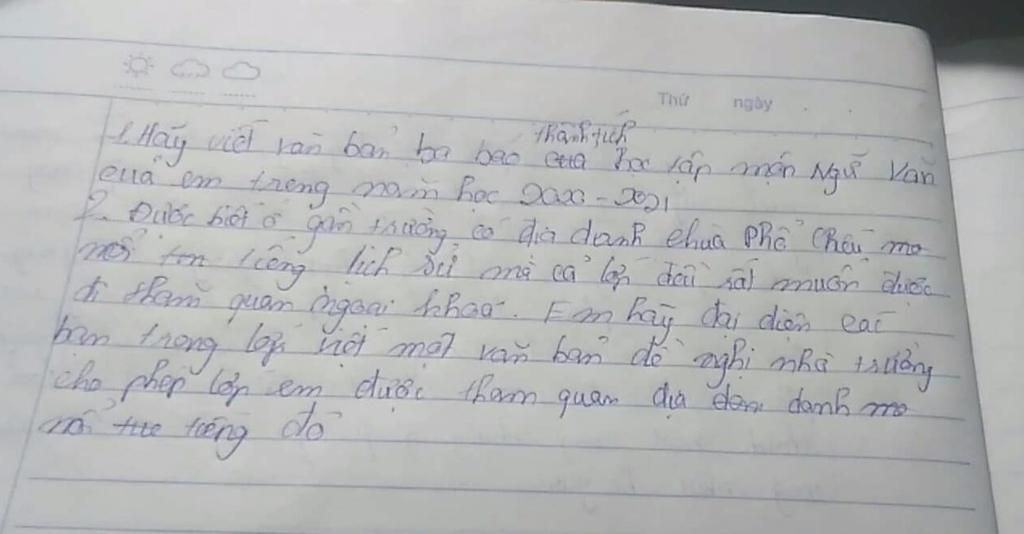 Thứ ngày
thành tích
1. Hãy viết văn bản ba bao của học tập môn Ngữ Văn
của em trong năm học 2020 - 2021
2. Được biết ở gần trường có địa danh chùa Phổ Chiếu mo
nổi ton tiếng lịch sử mà cả lớp đều rất muốn được
đi tham quan ngoại khoá. Em hãy đại diện cac
bạn trong lớp viết một văn bản đề nghị nhà trường
cho phép lớp em được tham quan địa danh mo
nổi tiếng đó